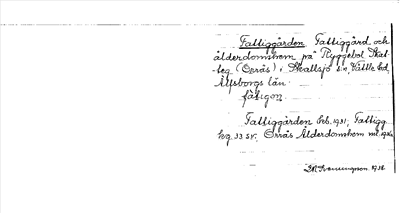 Fattiggården Fattiggård och
ålderdomshem på Ryggebol Skat-
teg (Orrås) i Skallsjö sn, Vättle hd,
Älfsborgs län.
fåtigon
Fattiggården Feb. 1931; Fattigg
hq. 33 SV; Orrås Ålderdomshem
1932